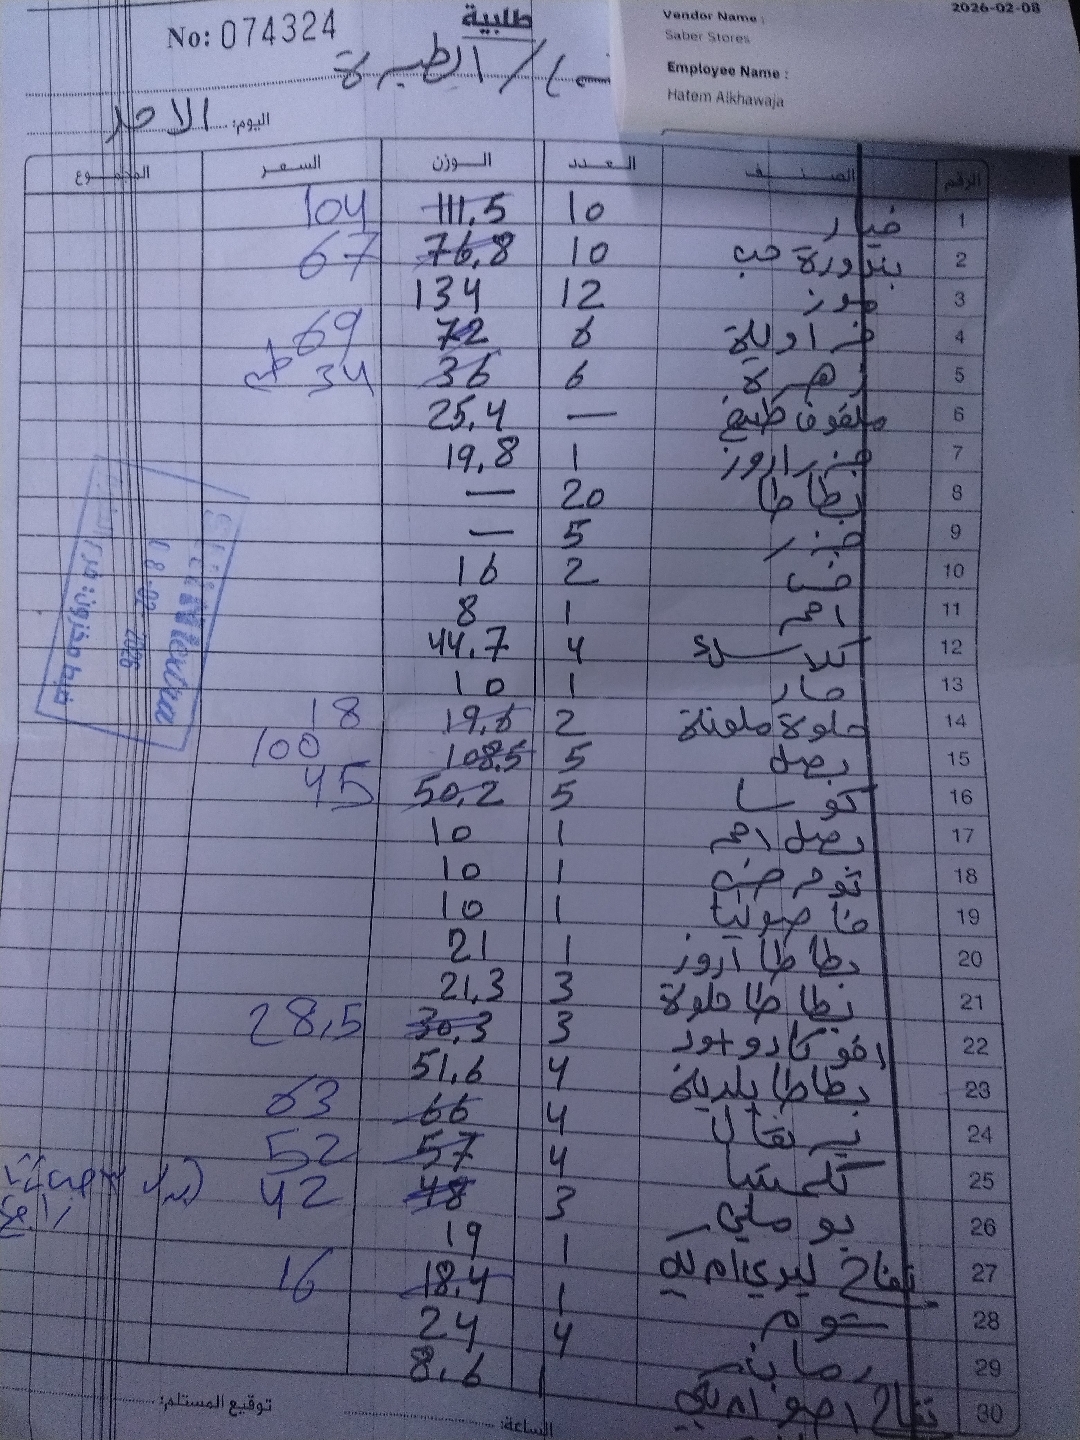 2026-02-08
Vendor Name :
Saber Stores
Employee Name :
Hatem Alkhawaja
طلبية
No: 074324
الطيرة
اليوم: الاحد
الرقم الصنف العدد الوزن السعر المجموع
1 خيار 10 111,5 104
2 بندورة حب 10 76,8 67
3 موز 12 134
4 فراولة 6 72 69
5 زهرة 6 36 34
6 ملفوف طبيخ — 25,4
7 1 19,8
8 بطاطا 20 —
9 جزر 5 —
10 خس 2 16
11 احمر 1 8
12 4 44,7
13 حار 1 10
14 حلوة ملونة 2 19,6 18
15 بصل 5 108,5 100
16 كوسا 5 50,2 45
17 بصل احمر 1 10
18 توم 1 10
19 فاصوليا 1 10
20 بطاطا 1 21
21 بطاطا حلوة 3 21,3
22 افوكادو 3 30,3 28,5
23 بطاطا بلدية 4 51,6
24 برتقال 4 66 63
25 كلمنتينا 4 57 52
26 بوملي 3 48 42
27 تفاح 1 19
28 توم 1 18,4 16
29 4 24
30 تفاح 1 8,6
08-02-2026
توقيع المستلم:
الساعة: